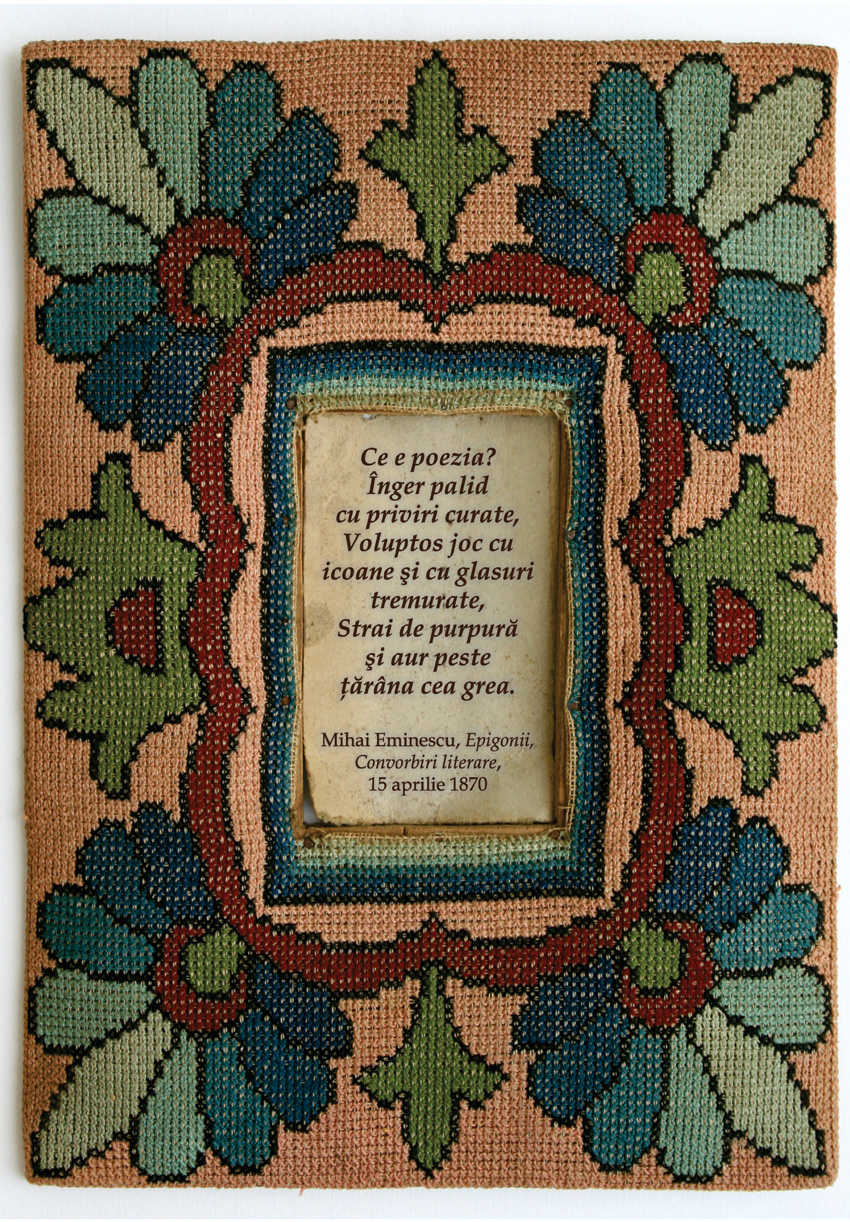 Ce e poezia?
Înger palid
cu priviri curate,
Voluptos joc cu
icoane şi cu glasuri
tremurate,
Strai de purpură
şi aur peste
ţărâna cea grea.
Mihai Eminescu, Epigonii,
Convorbiri literare,
15 aprilie 1870